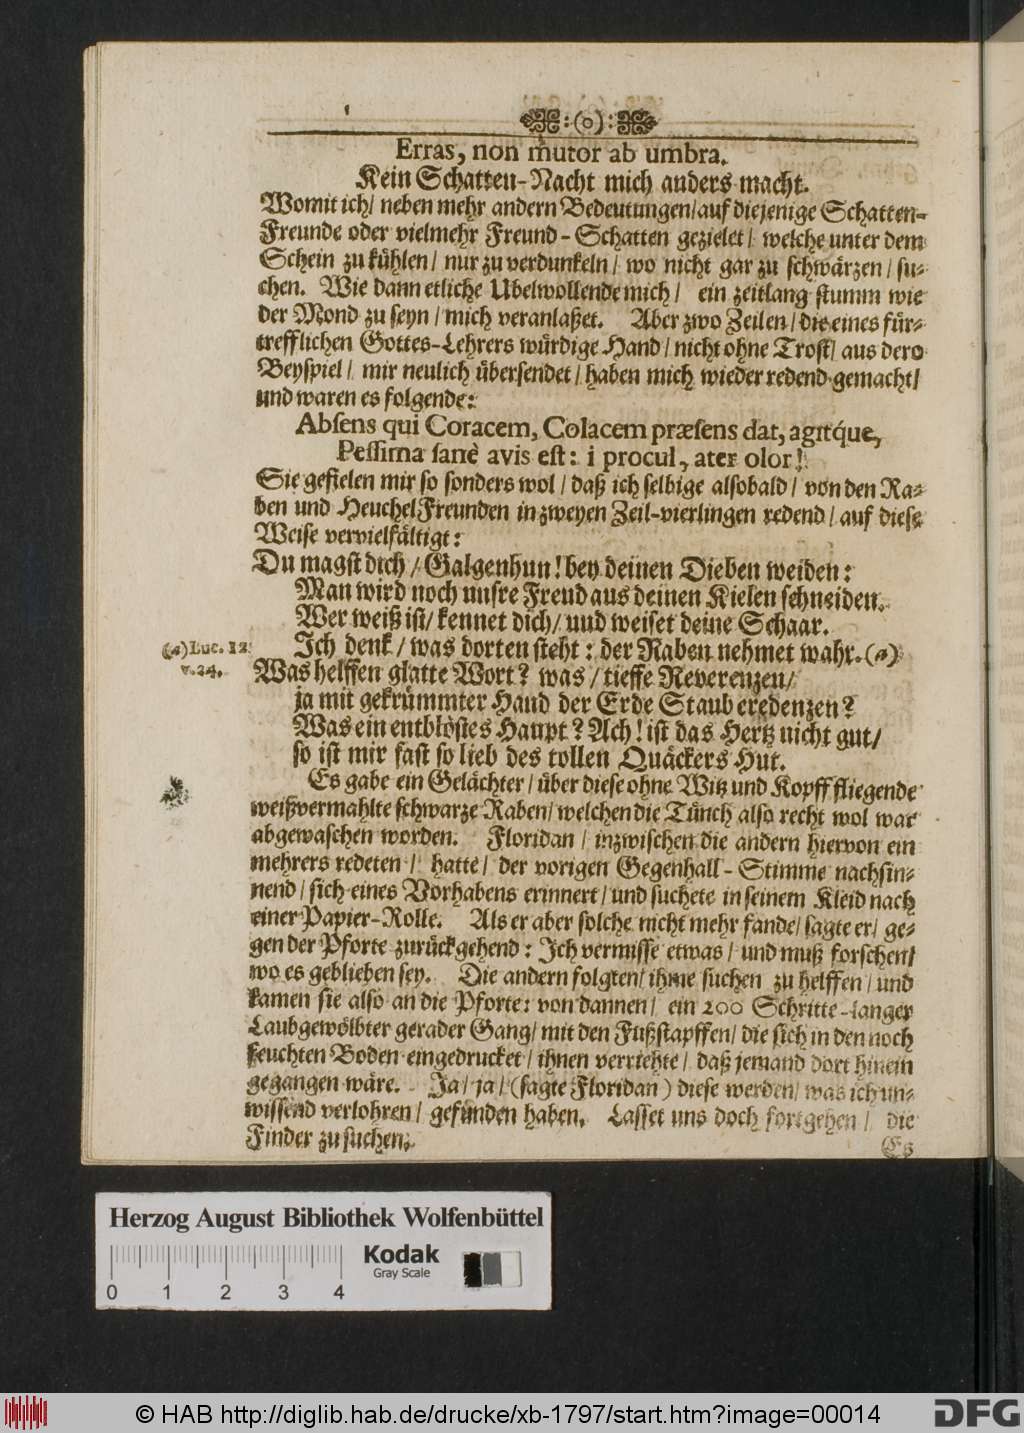 :(o):
Erras, non mutor ab umbra.
Kein Schatten-Nacht mich anders macht.
Womit ich/ neben mehr andern Bedeutungen/ auf diejenige Schatten-
Freunde oder vielmehr Freund-Schatten gezielet/ welche unter dem
Schein zu kühlen/ nur zu verdunkeln/ wo nicht gar zu schwärzen/ su-
chen. Wie dann etliche Ubelwollende mich/ ein zeitlang stumm wie
der Mond zu seyn/ mich veranlaßet. Aber zwo Zeilen/ die eines für-
trefflichen Gottes-Lehrers würdige Hand/ nicht ohne Trost/ aus dero
Beyspiel/ mir neulich übersendet/ haben mich wieder redend gemacht/
und waren es folgende:
Absens qui Coracem, Colacem præsens dat, agitq́ue,
Pessima sanè avis est: i procul, ater olor!
Sie gefielen mir so sonders wol/ daß ich selbige alsobald/ von den Ra-
ben und HeuchelFreunden in zweyen Zeil-vierlingen redend/ auf diese
Weise vervielfältigt:
Du magst dich/ Galgenhun! bey deinen Dieben weiden:
Man wird noch unsre Freud aus deinen Kielen schneiden.
Wer weiß ist/ kennet dich/ und weiset deine Schaar.
(a) Luc. 12. Ich denk/ was dorten steht: der Raben nehmet wahr. (a)
v. 24. Was helffen glatte Wort? was/ tieffe Reverenzen/
ja mit gekrümmter Hand der Erde Staub credenzen?
Was ein entblöstes Haupt? Ach! ist das Hertz nicht gut/
so ist mir fast so lieb des tollen Quäckers Hut.
Es gabe ein Gelächter/ über diese ohne Witz und Kopff fliegende
weißvermahlte schwarze Raben/ welchen die Tünch also recht wol war
abgewaschen worden. Floridan/ inzwischen die andern hiervon ein
mehrers redeten/ hatte/ der vorigen Gegenhall-Stimme nachsin-
nend/ sich eines Vorhabens erinnert/ und suchete in seinem Kleid nach
einer Papier-Rolle. Als er aber solche nicht mehr fande/ sagte er/ ge-
gen der Pforte zurückgehend: Ich vermisse etwas/ und muß forschen/
wo es geblieben sey. Die andern folgten/ ihme suchen zu helffen/ und
kamen sie also an die Pforte: von dannen/ ein 200 Schritte-langer
Laubgewölbter gerader Gang/ mit den Fußstapffen/ die sich in den noch
feuchten Boden eingedrucket/ ihnen verriehte/ daß jemand dort hinein
gegangen wäre. Ja/ ja/ (sagte Floridan) diese werden/ was ich un-
wissend verlohren/ gefunden haben. Lasset uns doch fortgehen/ die
Finder zu suchen.
Es
Herzog August Bibliothek Wolfenbüttel
Kodak
Gray Scale
0 1 2 3 4
© HAB http://diglib.hab.de/drucke/xb-1797/start.htm?image=00014
DFG